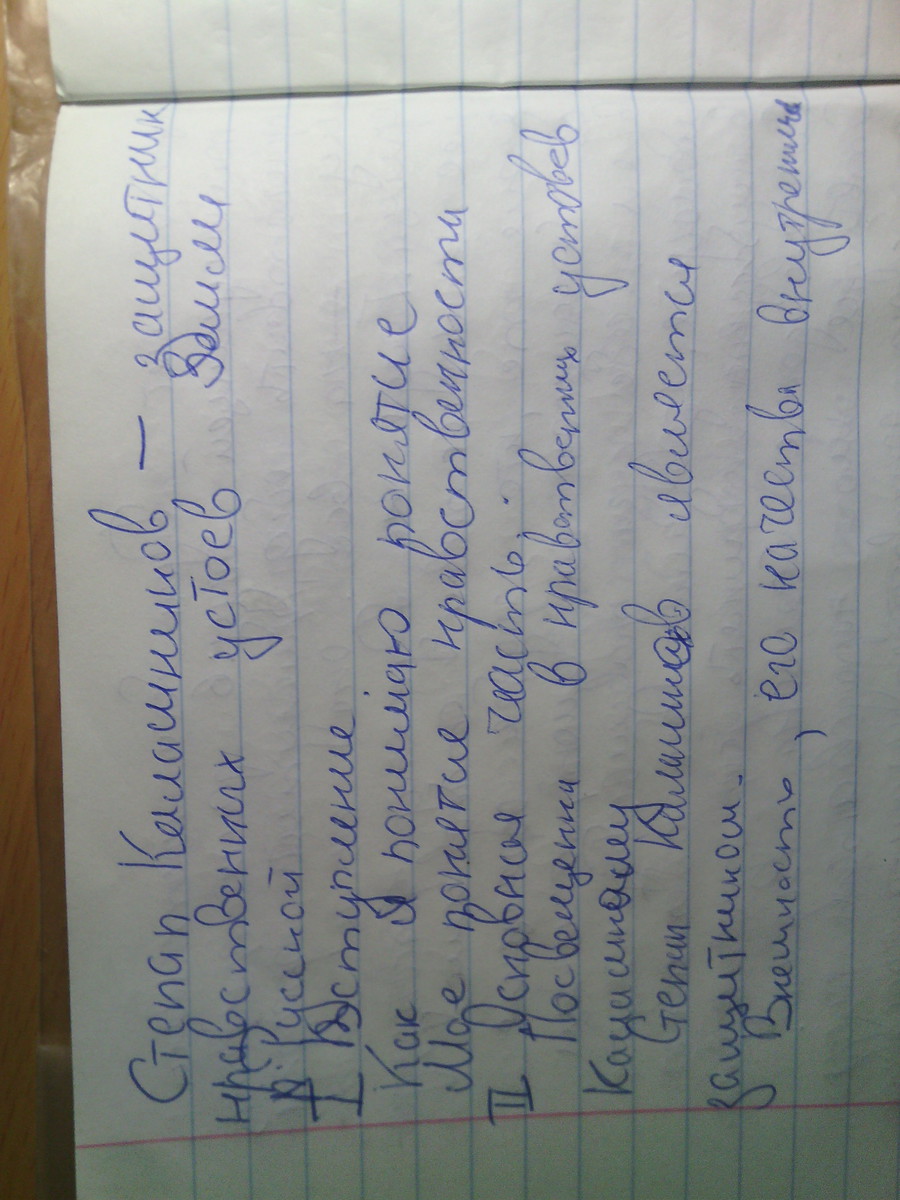 Степан Калашников — защитник
нравственных устоев Земли
Русской
I Вступление
Как я понимаю понятие
Мое понятие нравственности
II Основная часть:
Посвещенка в нравственних устовев
Степан Калашников является
защитником.
Внешность, его качества внутрение